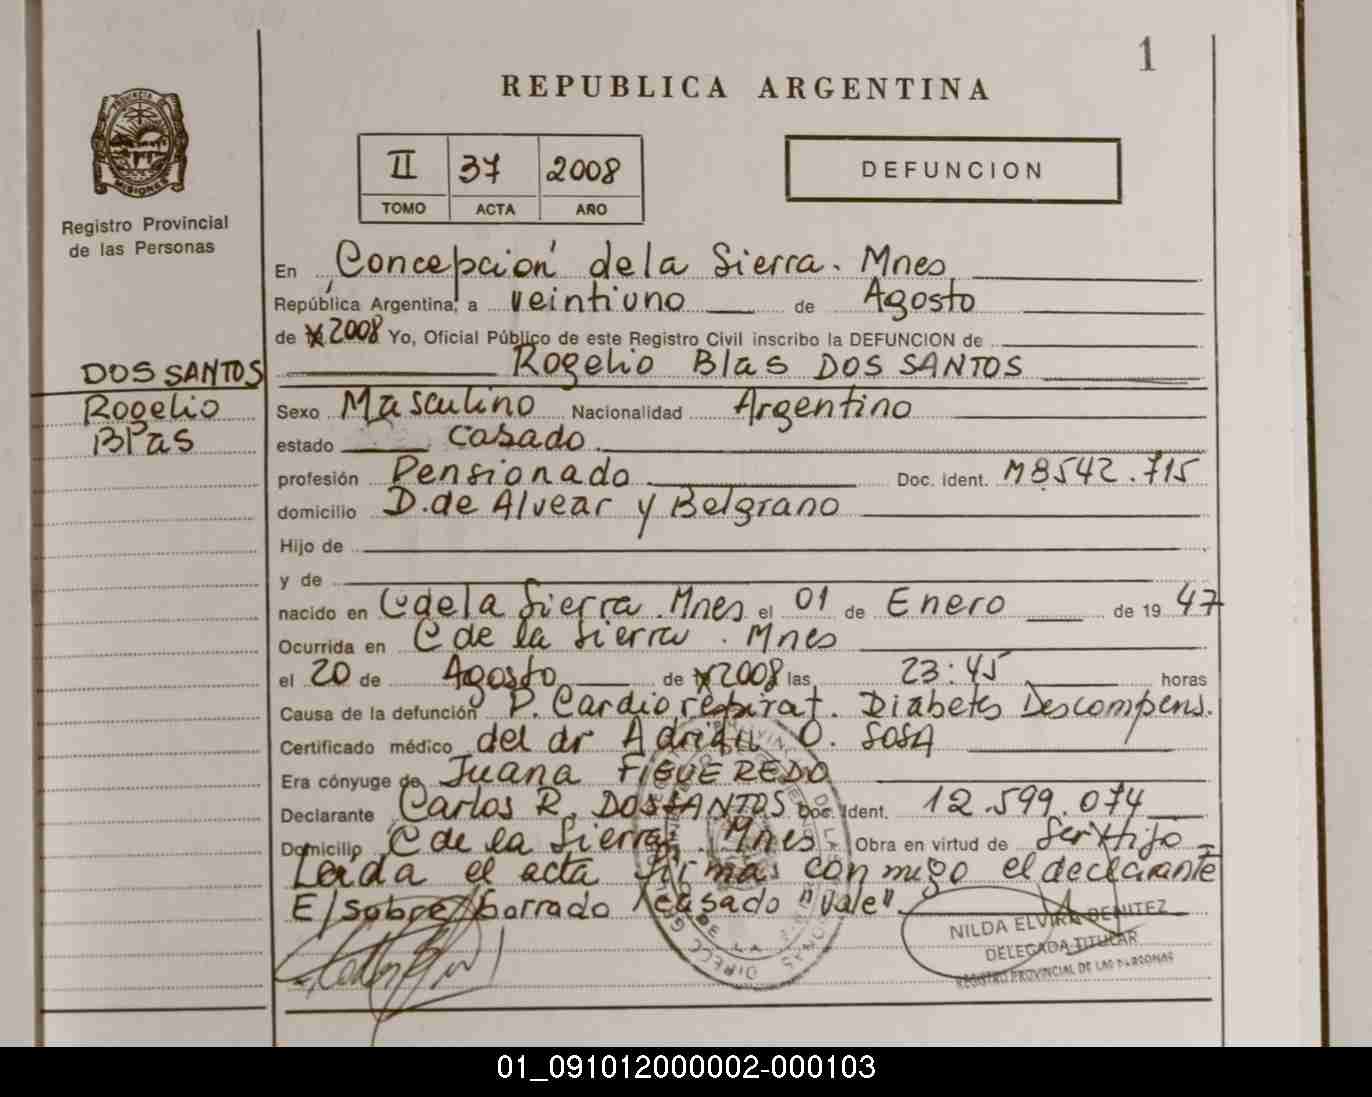 1
REPUBLICA ARGENTINA
PROVINCIA DE
MISIONES
Registro Provincial
de las Personas
II 37 2008
TOMO ACTA AÑO
DEFUNCION
En Concepción de la Sierra. Mnes
República Argentina, a veintiuno de Agosto
de 2008 Yo, Oficial Público de este Registro Civil inscribo la DEFUNCION de
Rogelio Blas DOS SANTOS
DOS SANTOS
Rogelio
Blas
Sexo Masculino Nacionalidad Argentino
estado casado
profesión Pensionado Doc. ident. M8.542.715
domicilio D. de Alvear y Belgrano
Hijo de
y de
nacido en C de la Sierra. Mnes el 01 de Enero de 19 47
Ocurrida en C de la Sierra. Mnes
el 20 de Agosto de 2008 las 23:45 horas
Causa de la defunción P. Cardiorespirat. Diabetes Descompens.
Certificado médico del dr Adrián O. SOSA
Era cónyuge de Juana FIGUEREDO
Declarante Carlos R. DOS SANTOS Doc. Ident. 12.599.074
Domicilio C de la Sierra. Mnes Obra en virtud de Ser Hijo
Leida el acta firma conmigo el declarante
E/sobre/borrado casado "Vale".
NILDA ELVIRA BENITEZ
DELEGADA TITULAR
REGISTRO PROVINCIAL DE LAS PERSONAS
01_091012000002-000103